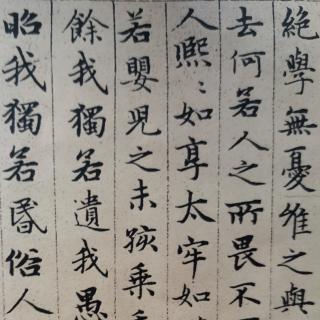 絕學無憂唯之與
去何若人之所畏不
人熙〻如享太牢如
若嬰兒之未孩乘乘
餘我獨若遺我愚
昭我獨若昏俗人